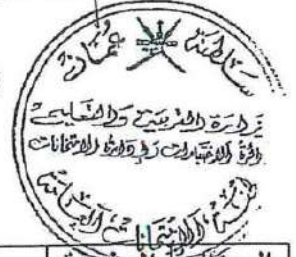 سلطنة عمان
وزارة التربية والتعليم
دائرة الاختبارات وإدارة الامتحانات
الامتحانات العامة